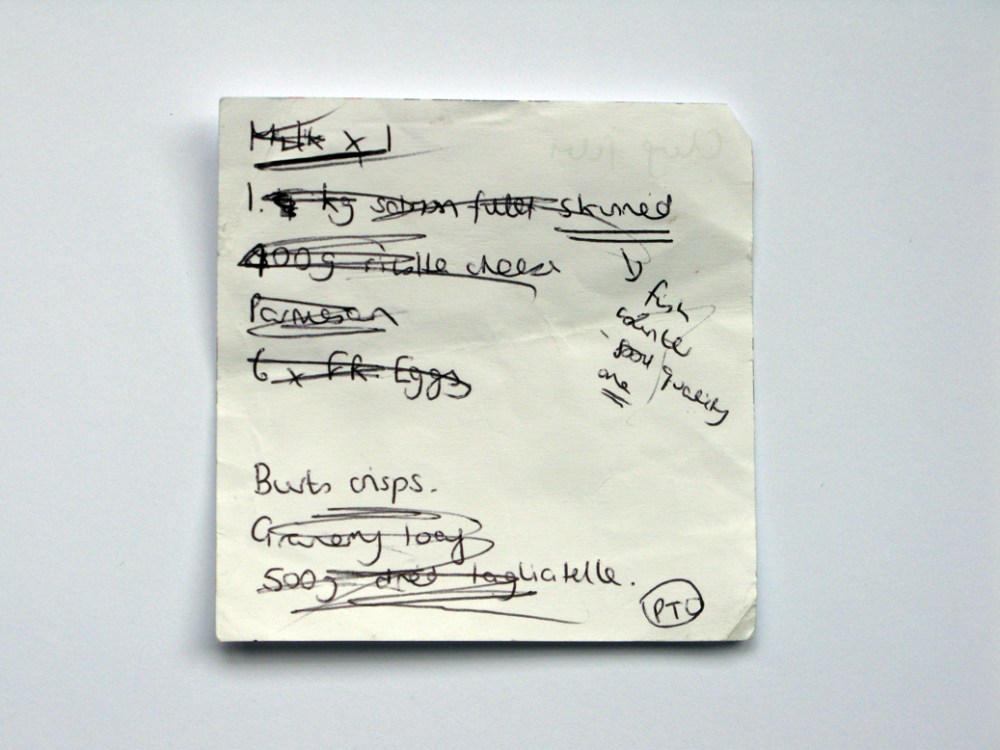 Milk x 1
1. kg salmon fillet skinned
400g ricotta cheese
Parmesan
6 x FR. Eggs
fish
counter
- good quality
one
Burts crisps.
Granary loaf
500g dried tagliatelle.
PTO